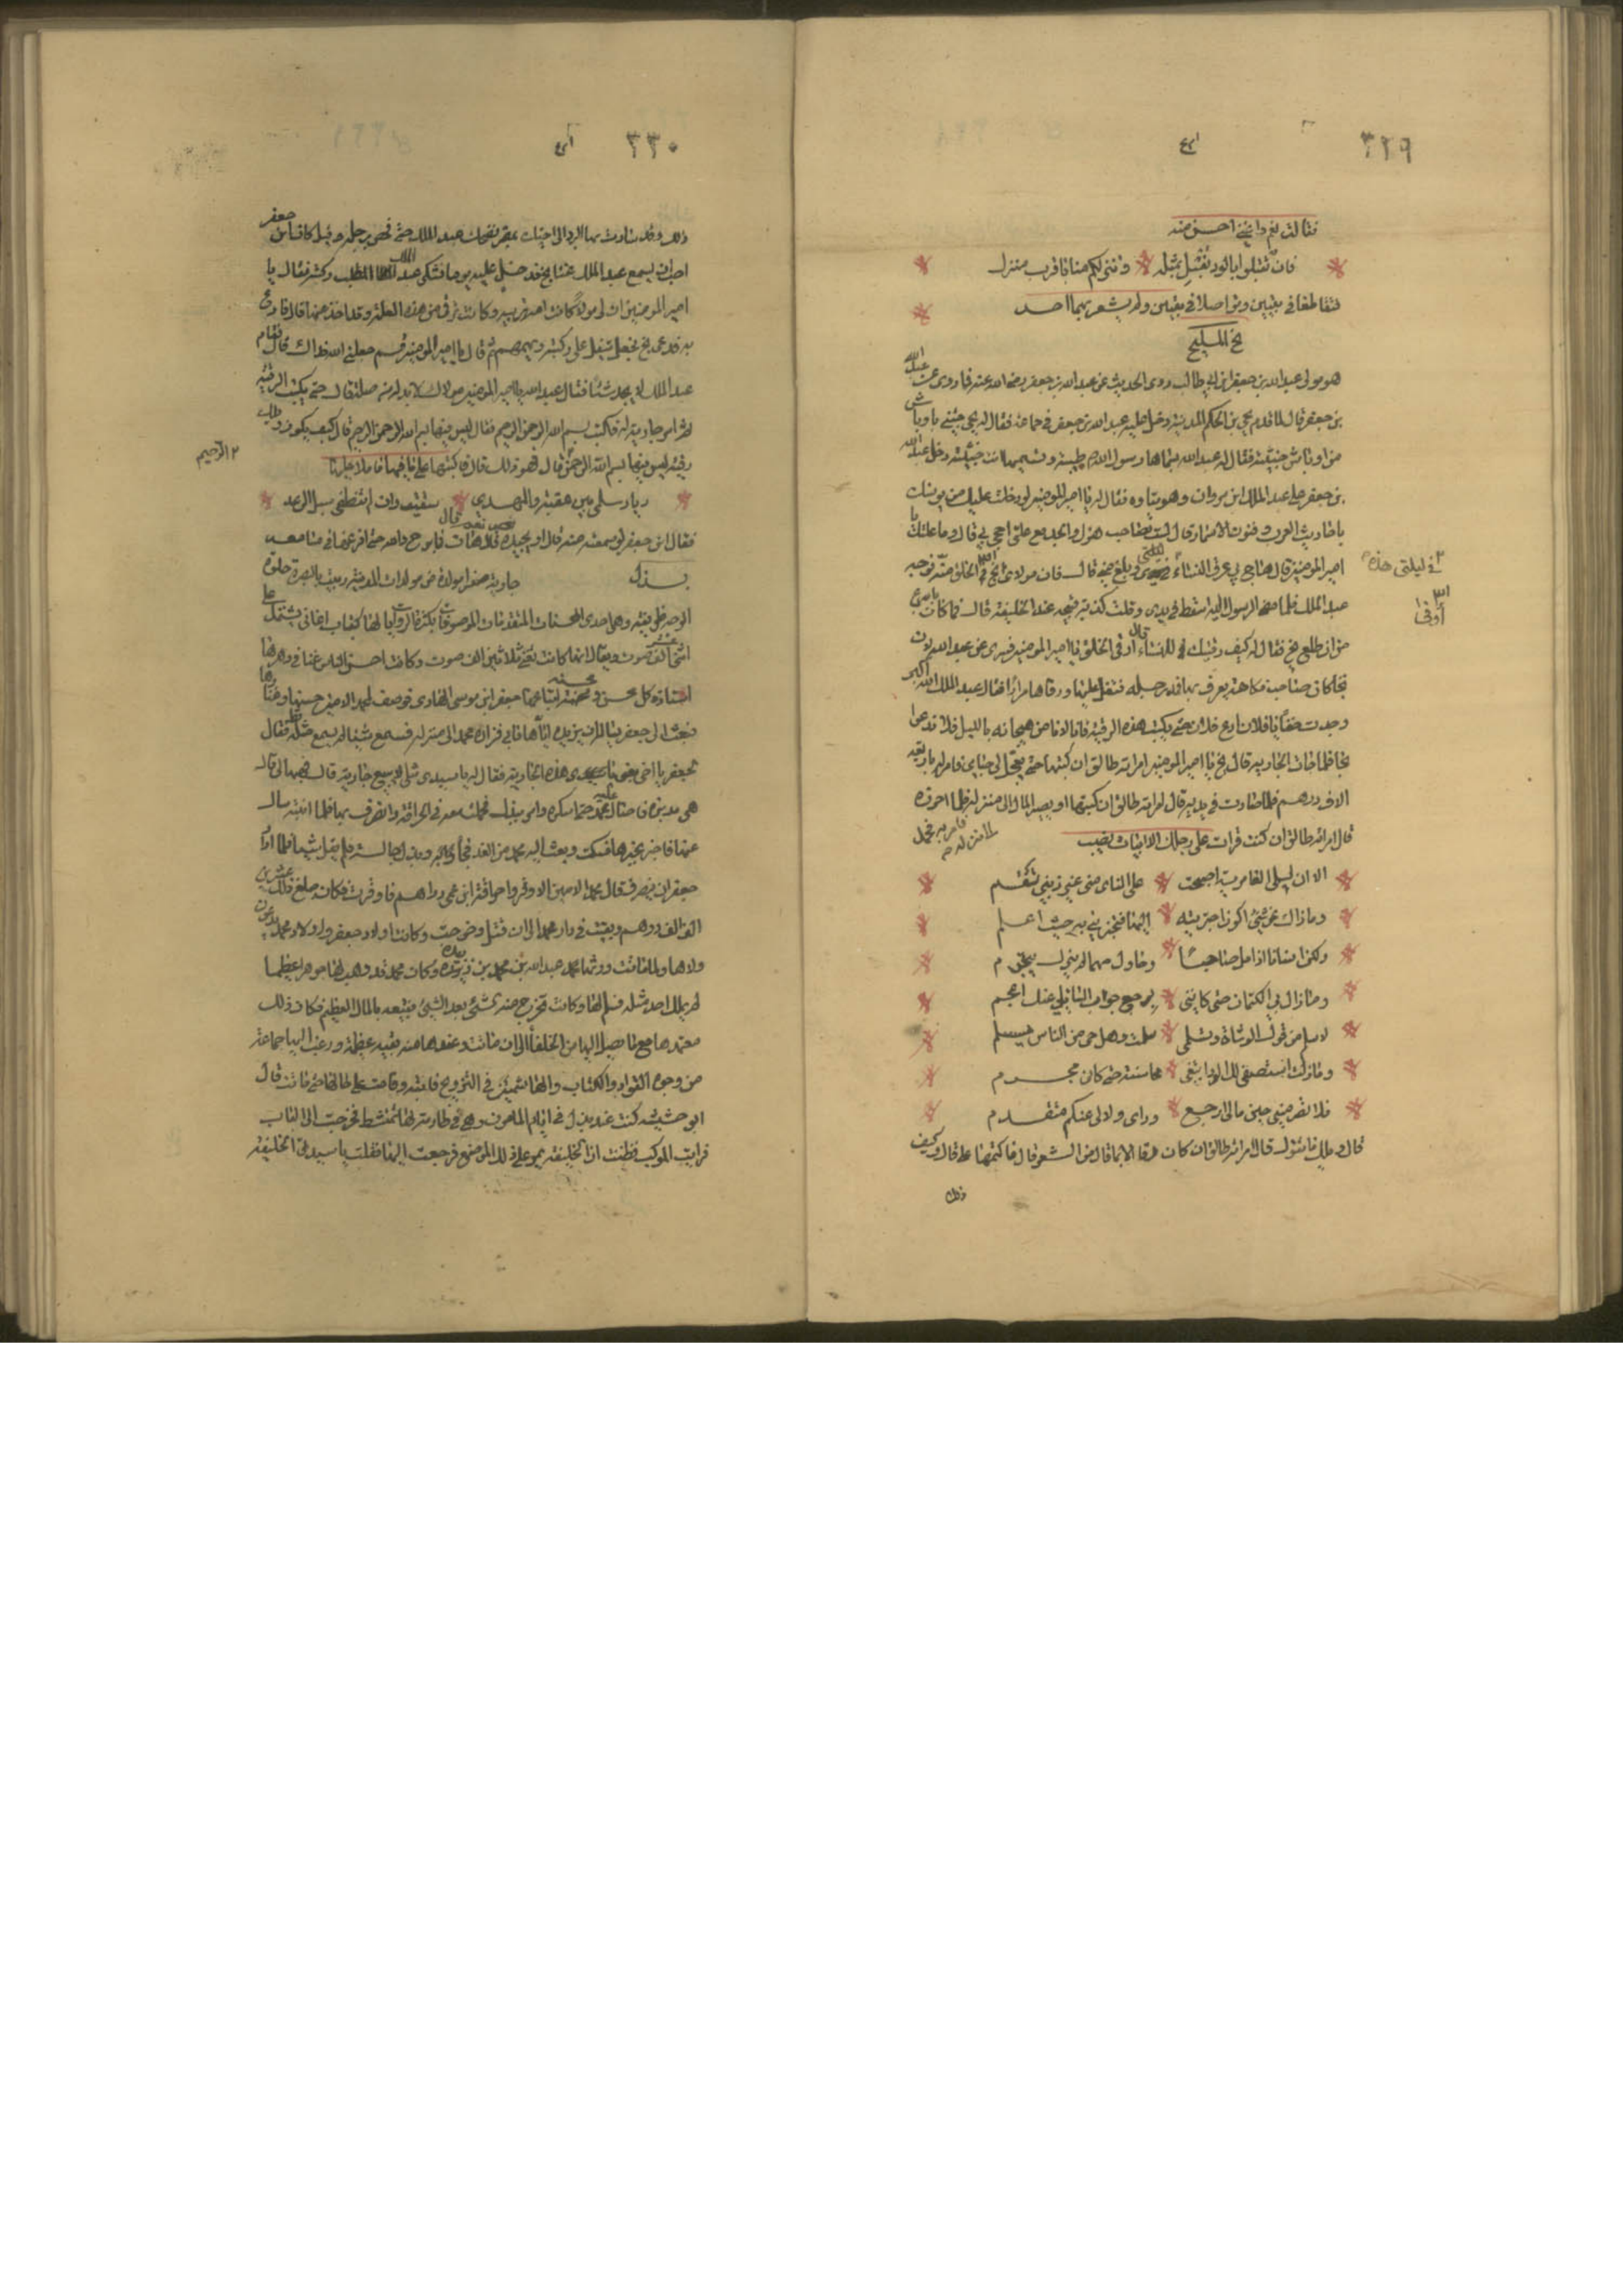 ٣٢٩
فقالت نعم واغني احسن منه
فان تقبلوا بالود نقبل بمثله وننزلكم منا باقرب منزل
فتقاطعا في بيتين وتواصلا في بيتين ولم يشعر بهما احد
بح المليح
هو مولى عبد الله بن جعفر بن ابي طالب روى الحديث عن عبد الله بن جعفر رضي الله عنه فما روى عن عبد الله
بن جعفر قال لما قدم يحيى بن الحكم المدينة دخل عليه عبد الله بن جعفر في جماعة فقال له يحيى جئتني باوباش
من اوباش خبيثة فقال له عبد الله سماها رسول الله طيبة وتسميها انت خبيثة ودخل عبد الله
بن جعفر على عبد الملك ابن مروان وهو يتاوه فقال له يا امير المومنين لو دخلت عليك من يونسك
باحاديث العرب وفنون الاسمار قال لست صاحب هزل والجد مع علتي احجى بي قال وما علتك يا
امير المومنين قال هاج بي عرق النساء ليلتي وبلغ مني قال فان مولاى بح ارقى الخلق منه فوجه
في ليلتي هذه
عبد الملك فلما مضى الرسول اليه سقط في يدي وقلت كذبة قبيحة عند الخليفة قال فما كان باسرع
من ان طلع بح فقال له كيف رقيتك لعرق النساء قال ارقى الخلق يا امير المومنين فسري عن عبد الله لان
بحا كان صاحب فكاهة يعرف بها فمد رجله فتفل عليها ورقاها مرارا فقال عبد الملك الله اكبر
وجدت خفا يا فلان ادع فلانة حتى تكتب هذه الرقية فانا لا نامن هيجانه بالليل فلا ندعوا
بحا فلما جات الجارية قال بح يا امير المومنين امراته طالق ان كتبتها حتى تعجل لي حباي فامر له باربعة
الاف درهم فلما صارت في يديه قال امراته طالق ان كتبتها او يصير المال الى منزله فلما احرزه
فامر به فحمل
الى منزله
قال امراته طالق ان كنت قرات على رجلك الا ابيات نصيب
الا ان ليلى العامرية اصبحت على الناى منى غير ذنبي تنقم
وما ذاك من شئ اكون اجترمته اليها فتجزيني به حيث اعلم
ولكن انسانا اذا مل صاحبا وحاول صرما لم يزل يتجرم
وما زال بي الكتمان حتى كانني برجع جواب السائلي عنك اعجم
لاسلم من قول الوشاة وتسلمي سلمت وهل حي من الناس يسلم
وما زلت استصفي لك الود ابتغى محاسنة حتى كان مجرم
فلا تصرميني حين مالي مرجع وراى ولا لي عنكم متقدم
قال ويلك ما تقول قال امراته طالق ان كان رقاك الا بما قال من الشعر قال فاكتمها على قال وكيف
ذلك
٣٣٠
ذلك وقد سارت بها البرد الى اخيك بمصر فضحك عبد الملك حتى فحص برجليه وقيل كان ابن جعفر
احب ان يسمع عبد الملك غنا بح فدخل عليه يوما فشكى عبد الملك وكثر فقال يا
امير المومنين ان لي مولاة كانت امه بربرية وكانت ترقى من هذه العلة وقد اخذ عنها قال فادع
به فدعي بح فجعل يتفل على ركبته ويهمهم ثم قال يا امير المومنين قم جعلني الله فداك قال فقام
عبد الملك لا يجد شيئا فقال عبد الله يا امير المومنين مولاك لا بد له من صلة قال حتى يكتب الرقية
ثم امر جارية له فاكتب بسم الله الرحمن الرحيم فقال ليس فيها بسم الله الرحمن الرحيم قال كيف يكون ويلك
رقية ليس فيها بسم الله الرحمن قال فهو ذلك قال فاكتبيها على ما فيها فاملا عليها
الرحيم
ديار سلمى بين عيقة والمهدي سقيت وان لم تنطقي سبل الرعد
فقال ابن جعفر لو سمعته منه قال او يجيده قال نعم قال هات فما برح والله حتى افرغها في مسامعه
بذل جارية صفرا مولدة من مولدات المدينة ربيت بالبصرة حلوة
الوجه ظريفة وهي احدى المحسنات المتقدمات الموصوفات بكثرة الرواية لها كتاب اغاني يشتمل على
اثنى عشر الف صوت ويقال انها كانت تغني ثلاثين الف صوت وكانت احسن الناس غنا في دهرها
استاذة كل محسن ومحسنة ابتاعها جعفر ابن موسى الهادى فوصفت لمحمد الامين حسنها وغناؤها
فبعث الى جعفر يساله ان يزيره اياها فابى فزاره محمد الى منزله فسمع شيئا لم يسمع مثله قط فقال
لجعفر يا اخي بعني هذه الجارية فقال له يا سيدى مثلي لا يبيع جارية قال فهبها لي قال
هي مدبرة فاحتال عليه محمد حتى اسكره وامر ببذل فحملت معه في الحراقة وانصرف بها فلما انتبه سال
عنها فاخبر بخبرها فسكت وبعث اليه محمد من الغد فجاه وبذل جالسة فلم يقل شيئا فلما اراد
جعفر ان ينصرف قال محمد الامين اوقروا حراقة ابن عمي دراهم فاوقرت فكان مبلغ ذلك عشرين
الف الف درهم وبقيت في دار محمد الى ان قتل وخرجت وكانت اولاد جعفر واولاد محمد يدعون
ولاها ولما ماتت ورثها محمد عبد الله بن محمد بن زبيدة وكان محمد قد وهب لها جوهرا عظيما
لم يملك احد مثله فسلم لها وكانت تخرج منه الشئ بعد الشئ فتبيعه بالمال العظيم فكان ذلك
معتمدها مع ما يصل اليها من الخلفا الى ان ماتت وعندها منه بقية عظيمة ورغب اليها جماعة
من وجوه القواد والكتاب والهاشميين في التزويج فابته واقامت على حالها حتى ماتت قال
ابو حشيشة كنت عند بذل في ايام المامون وهي في طارمة لها تمتشط فخرجت الى الباب
فرايت الموكب فظننت ان الخليفة يمر على ذلك الموضع فرجعت اليها فقلت يا سيدتي الخليفة